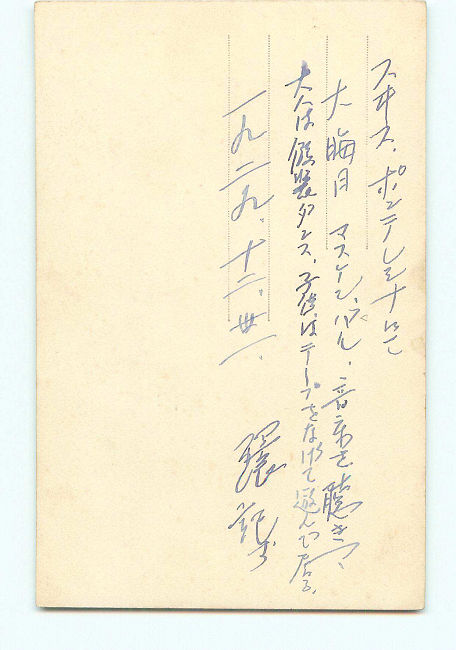 スヰス、ポンテレシナにて
大晦日 マスケンバル、音楽を聴きつゝ
大人は假装ダンス、子供はテープをなげて遊んで居る。
一九二九、十二、卅一、
環 記す